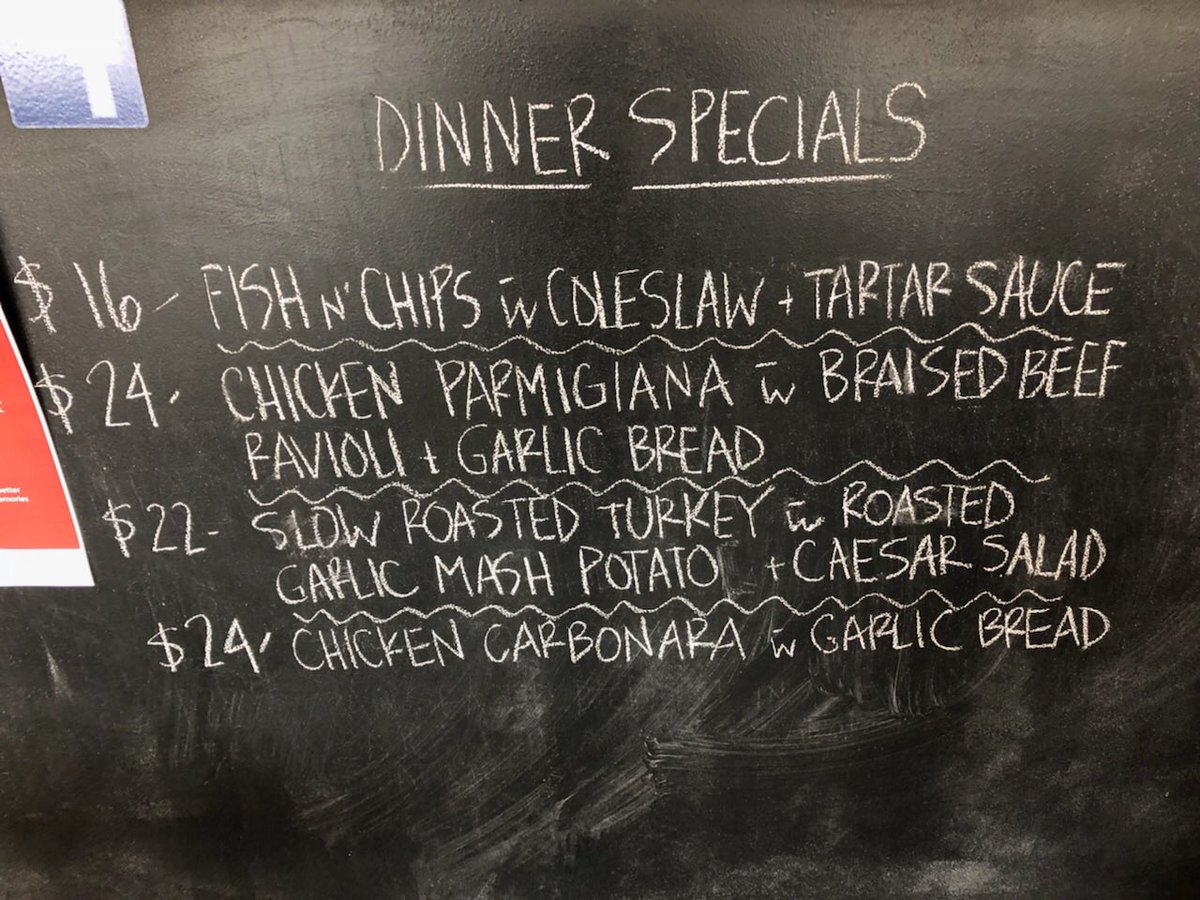 f
DINNER SPECIALS
$16 - FISH N' CHIPS w̄ COLESLAW + TARTAR SAUCE
$24 - CHICKEN PARMIGIANA w̄ BRAISED BEEF
RAVIOLI + GARLIC BREAD
$22 - SLOW ROASTED TURKEY w̄ ROASTED
GARLIC MASH POTATO + CAESAR SALAD
$24 - CHICKEN CARBONARA w̄ GARLIC BREAD